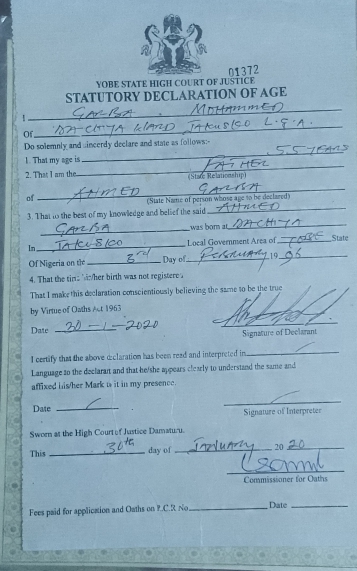 01372
YOBE STATE HIGH COURT OF JUSTICE
STATUTORY DECLARATION OF AGE
I GARBA MOHAMMED
Of DACHIYA WARD JAKUSKO L.G.A.
Do solemnly and sincerdy declare and state as follows:-
1. That my age is 55 YEARS
2. That I am the FATHER
(State Relationship)
of AHMED GARBA
(State Name of person whose age to be declared)
3. That to the best of my knowledge and belief the said AHMED
GARBA was born at DACHIYA
In JAKUSKO Local Government Area of YOBE State
Of Nigeria on the 3rd Day of February 19 96
4. That the his/her birth was not registere
That I make this declaration conscientiously believing the same to be the true
by Virtue of Oaths Act 1963
Date 30-1-2020
Signature of Declarant
I certify that the above declaration has been read and interpreted in
Language to the declarat and that he/she appears clearly to understand the same and
affixed his/her Mark to it in my presence.
Date
Signature of Interpreter
Sworn at the High Court of Justice Damaturu.
This 30th day of January 20 20
Commissioner for Oaths
Fees paid for application and Oaths on P.C.R No. Date